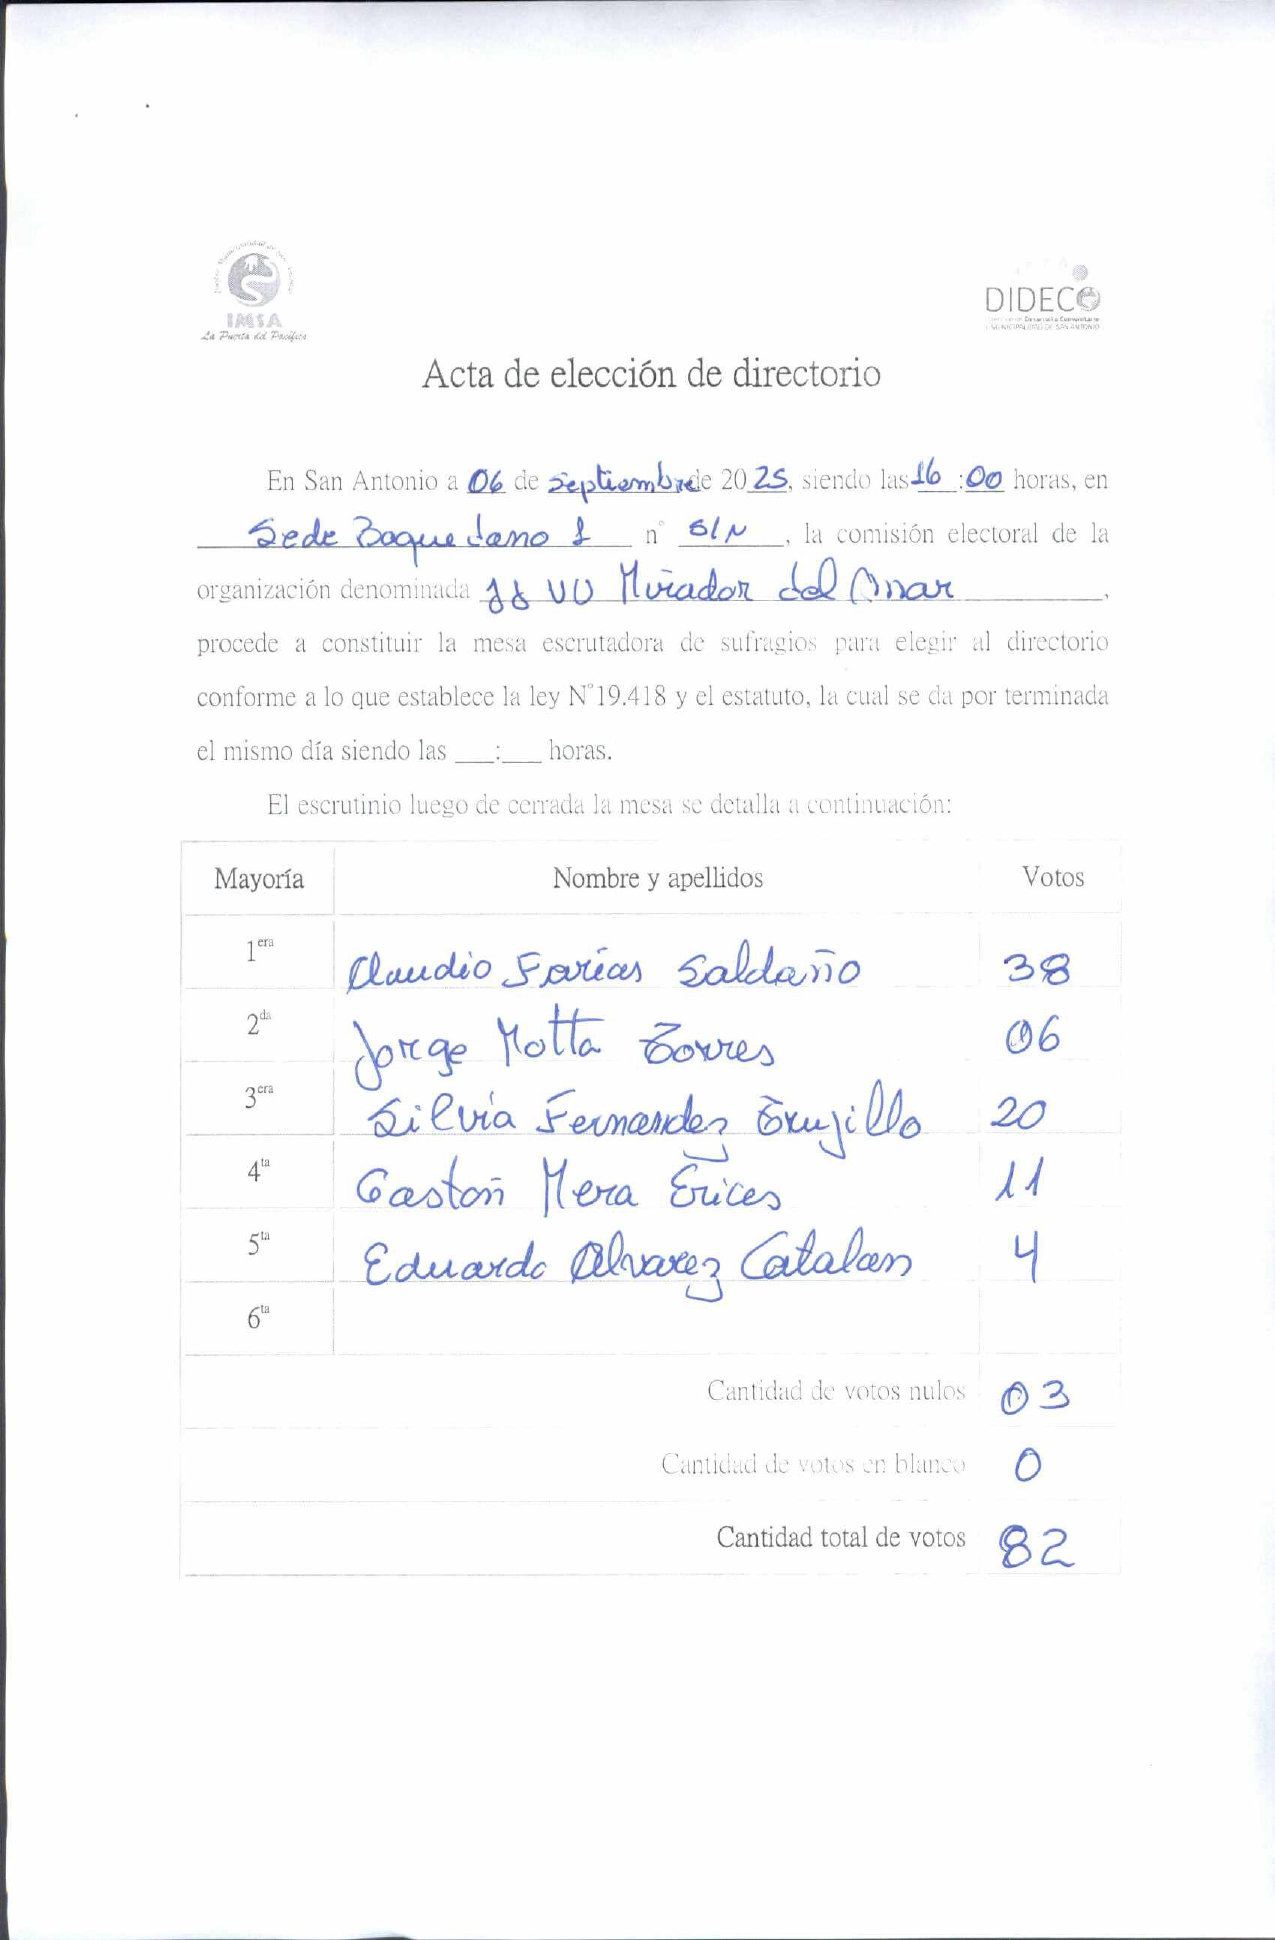 IMSA
La Puerta del Pacífico
DIDECO
Acta de elección de directorio
En San Antonio a 06 de septiembre de 2025, siendo las 16:00 horas, en
Sede Baquedano 1 n° S/N, la comisión electoral de la
organización denominada JJ VV Mirador del Mar,
procede a constituir la mesa escrutadora de sufragios para elegir al directorio
conforme a lo que establece la ley N°19.418 y el estatuto, la cual se da por terminada
el mismo día siendo las ___:___ horas.
El escrutinio luego de cerrada la mesa se detalla a continuación:
Mayoría Nombre y apellidos Votos
1era Claudio Farías Saldaño 38
2da Jorge Motta Torres 06
3era Silvia Fernandez Trujillo 20
4ta Gastón Mera Erices 11
5ta Eduardo Alvarez Catalan 4
6ta
Cantidad de votos nulos 03
Cantidad de votos en blanco 0
Cantidad total de votos 82